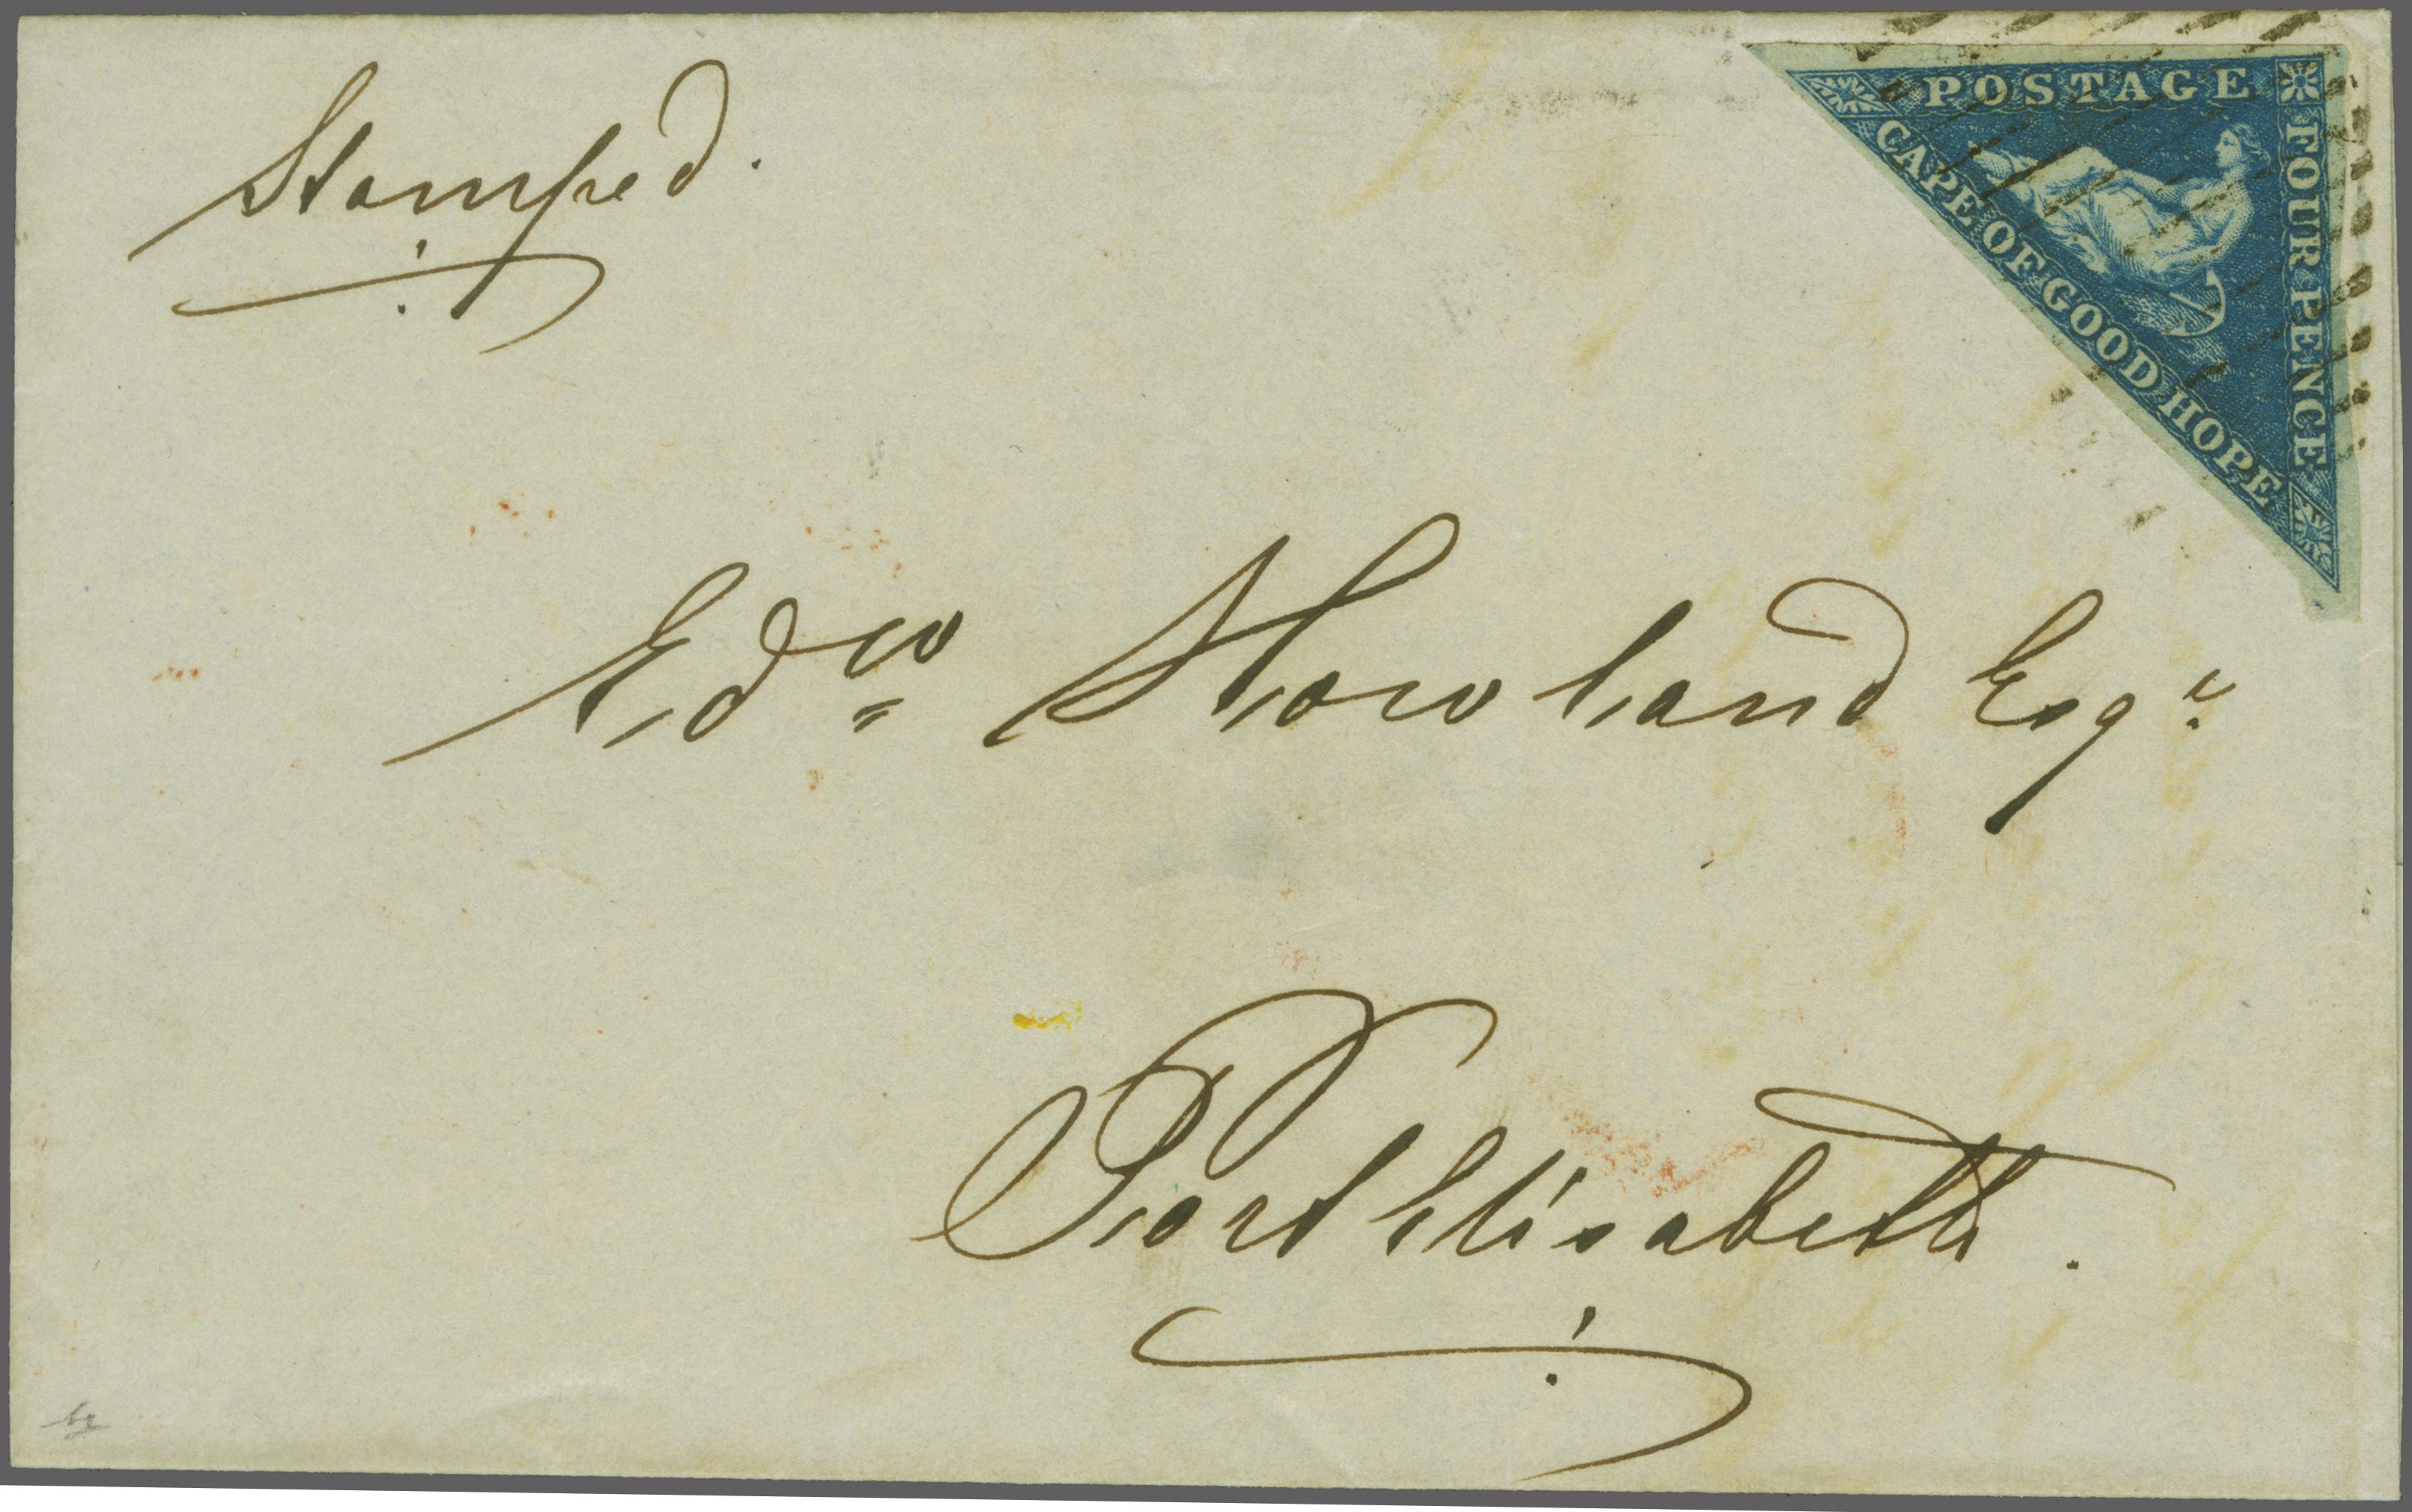 Stamped.
POSTAGE
FOUR PENCE
CAPE OF GOOD HOPE
Edw Howland Esqr
Port Elisabeth.